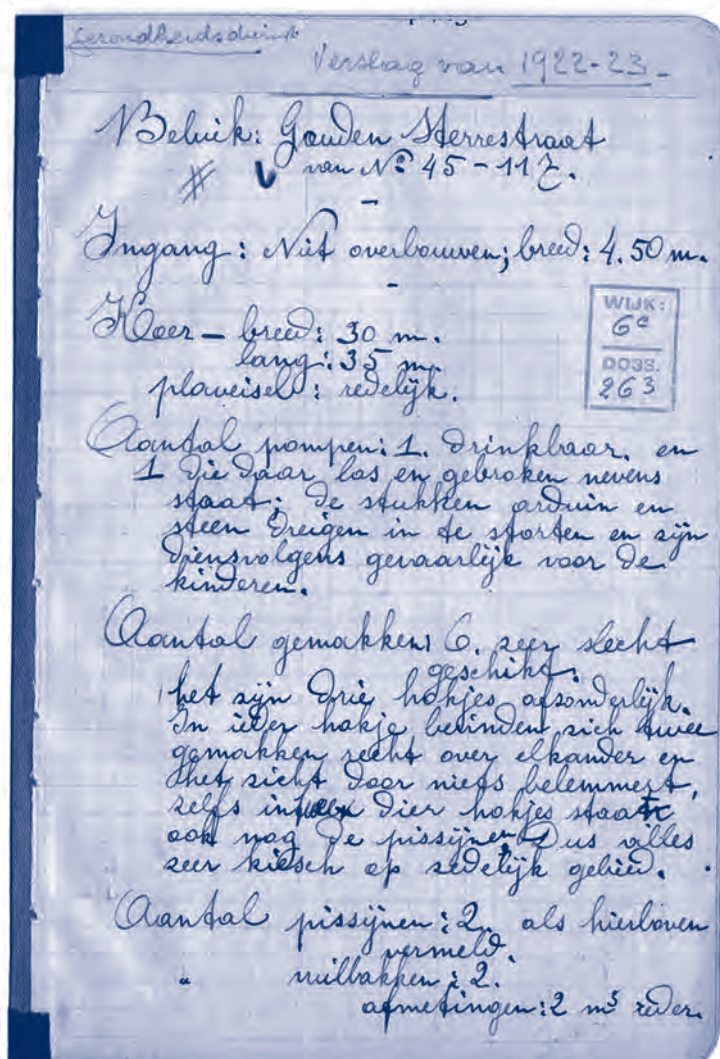 Gezondheidsdienst
Verslag van 1922-23-
Beluik: Gouden Sterrestraat
van Nº 45-117.
-
Ingang: Niet overbouwen; breed: 4.50 m.
-
Koer - breed: 30 m.
lang: 35 m.
plaveisel: redelijk.
WIJK:
6e
DOSS.
263
Aantal pompen: 1. drinkbaar. en
1 die daar los en gebroken nevens
staat; de stukken arduin en
steen dreigen in te storten en zijn
diensvolgens gevaarlijk voor de
kinderen.
Aantal gemakken: 6. zeer slecht
geschikt.
het zijn drie hokjes afzonderlijk.
In ieder hokje bevinden zich twee
gemakken recht over elkander en
het zicht door niets belemmert,
zelfs in dier hokjes staat
ook nog de pissijnen. Dus alles
zeer kiesch op zedelijk gebied.
Aantal pissijnen: 2. als hierboven
vermeld.
" vuilbakken: 2.
afmetingen: 2 m³ ieder.